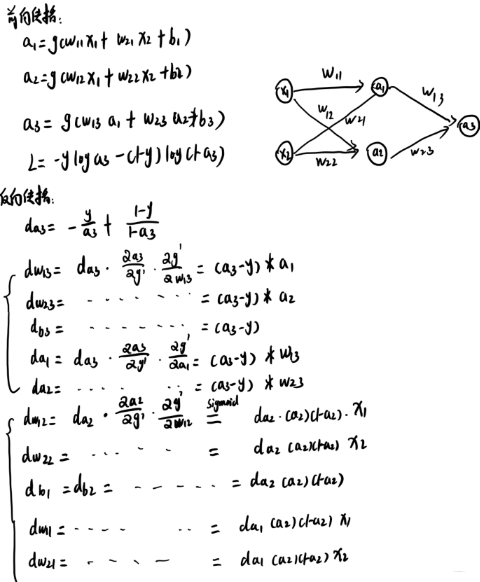 前向传播:
a₁=g(w₁₁x₁+ w₂₁x₂+b₁)
a₂=g(w₁₂x₁+w₂₂x₂+b₂)
a₃= g(w₁₃ a₁+ w₂₃ a₂+b₃)
L= -y log a₃ -(1-y) log(1-a₃)
x₁ w₁₁ a₁ w₁₃ a₃
w₁₂ w₂₁
x₂ w₂₂ a₂ w₂₃
反向传播:
da₃= - y/a₃ + 1-y/1-a₃
dw₁₃= da₃ · ∂a₃/∂g' · ∂g'/∂w₁₃ = (a₃-y) * a₁
dw₂₃= · · · · · · · = (a₃-y) * a₂
db₃= · · · · · · · = (a₃-y)
da₁= da₃ · ∂a₃/∂g' · ∂g'/∂a₁ = (a₃-y) * w₁₃
da₂= · · · · · · = (a₃-y) * w₂₃
dw₁₂= da₂ · ∂a₂/∂g' · ∂g'/∂w₁₂ sigmoid = da₂ · (a₂)(1-a₂) · x₁
dw₂₂ = · · · · · = da₂ (a₂)(1-a₂) x₂
db₁ = db₂ = - - - - - = da₂ (a₂)(1-a₂)
dw₁₁= · · · · · · = da₁ (a₂)(1-a₂) x₁
dw₂₁= - - - - = da₁ (a₂)(1-a₂) x₂